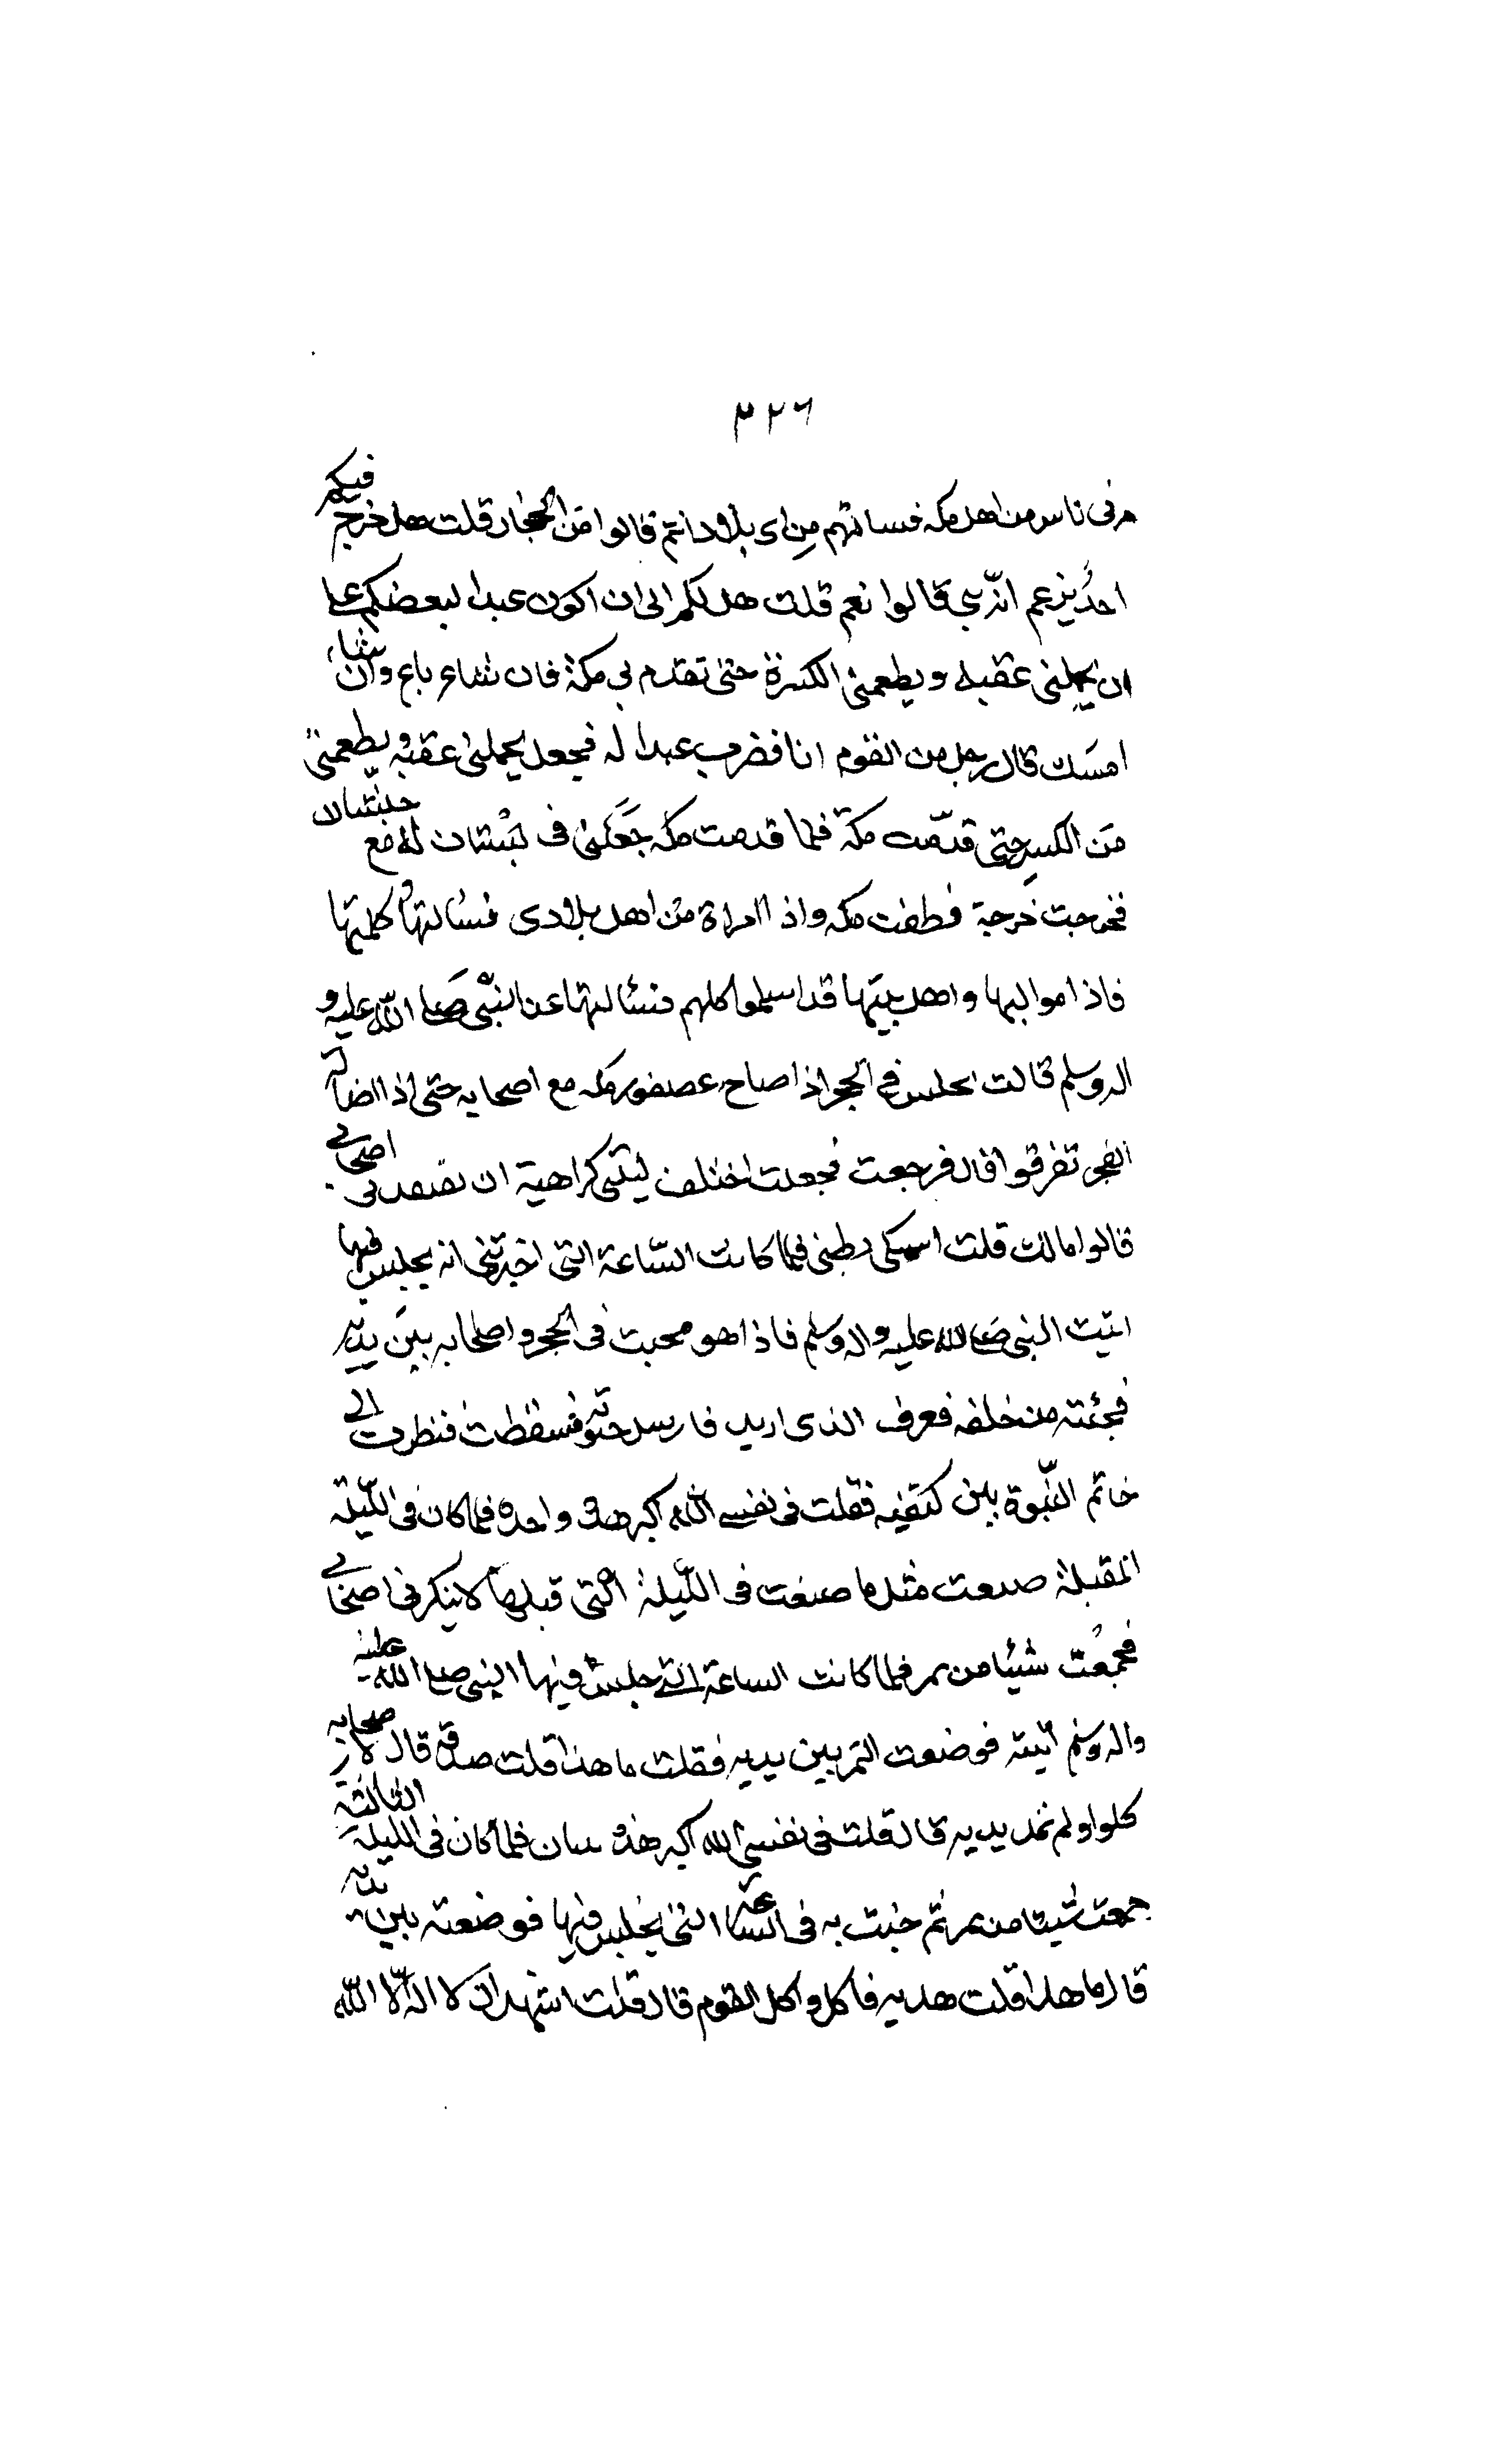 ٣٢٦
مر بى ناس من اهل مكه فسالتهم من اى بلاد انتم قالوا من الحجاز قلت هل خرج فيكم
احد يزعم انه نبى قالوا نعم قلت هل لكم الى ان اكون عبدا لبعضكم على
ان يحملنى عقبه ويطعمنى الكسرة حتى تقدم بى مكة فان شاء باع وان شاء
امسك قال رجل من القوم انا فضرب عبدا له فجعل يحملنى عقبه ويطعمنى
من الكسر حتى قدمت مكة فلما قدمت مكه جعلنى فى بستان له مع حبشان
فخرجت خرجة فطفت مكه واذا امراة من اهل بلادى فسالتها وكلمتها
فاذا مواليها واهل بيتها قد اسلموا كلهم فسئالتها عن النبى صلى الله عليه و
اله وسلم قالت يجلس فى الحجر اذا صاح عصفور مكه مع اصحابه حتى اذا اضاله
الفجر تفرقوا قال فرجعت فجعلت اختلف ليلتى كراهية ان تفتقدنى اصحابى
قالوا مالك قلت اشتكى بطنى فلما كانت الساعة التى اخبرتنى انه يجلس فيها
اتيت النبى صلى الله عليه واله وسلم فاذا هو محبت فى الحجر واصحابه بين يديه
فجئته من خلفه فعرف الذى اريد فارسل حبوته فسقطت فنظرت الى
خاتم النبوة بين كتفيه فقلت فى نفسى الله اكبر هذه واحده فلما كان فى الليلة
المقبلة صنعت مثل ما صنعت فى الليلة التى قبلها لا ينكرنى اصحابى
فجمعت شيئا من تمر فلما كانت الساعة التى جلس فيها النبى صلى الله عليه
واله وسلم اتيته فوضعت التمر بين يديه فقلت ما هذا قلت صدقة قال لاصحابه
كلوا ولم تمد يديه قال قلت فى نفسى الله اكبر هذه سان فلما كان فى الليلة الثالثة
جمعت شيئا من تمر ثم جئت به فى الساعة التى يجلس فيها فوضعته بين يديه
قال ما هذا قلت هديه فاكل واكل القوم قال قلت اشهد ان لا اله الا الله